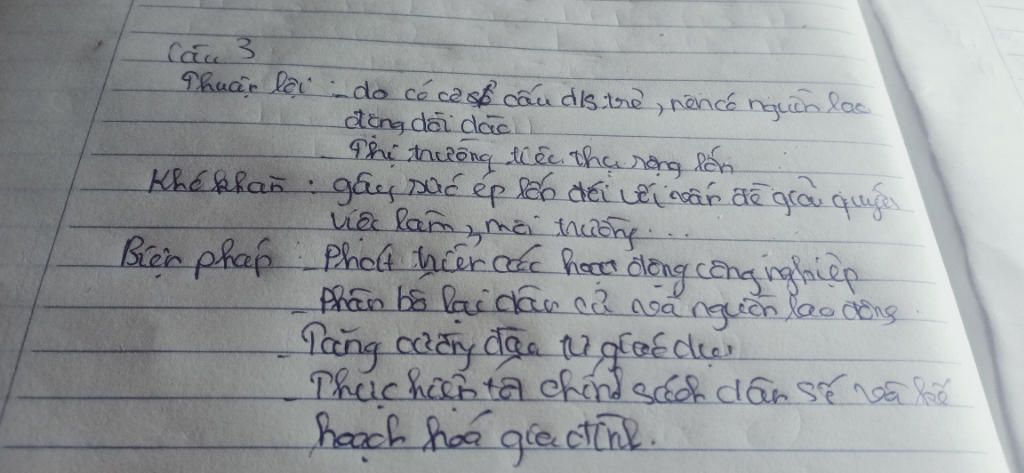 Câu 3
Thuận lợi : - do có cơ sở cấu d/s trẻ, nên có nguồn lao
động dồi dào
- Thị trường tiêu thụ rộng lớn
Khó khăn : gây sức ép lớn đối với vấn đề giải quyết
việc làm, môi trường...
Biện pháp : - Phát triển các hoạt động công nghiệp
- Phân bố lại dân cư và nguồn lao động
- Tăng cường đầu tư giáo dục
- Thực hiện tốt chính sách dân số và kế
hoạch hoá gia đình.